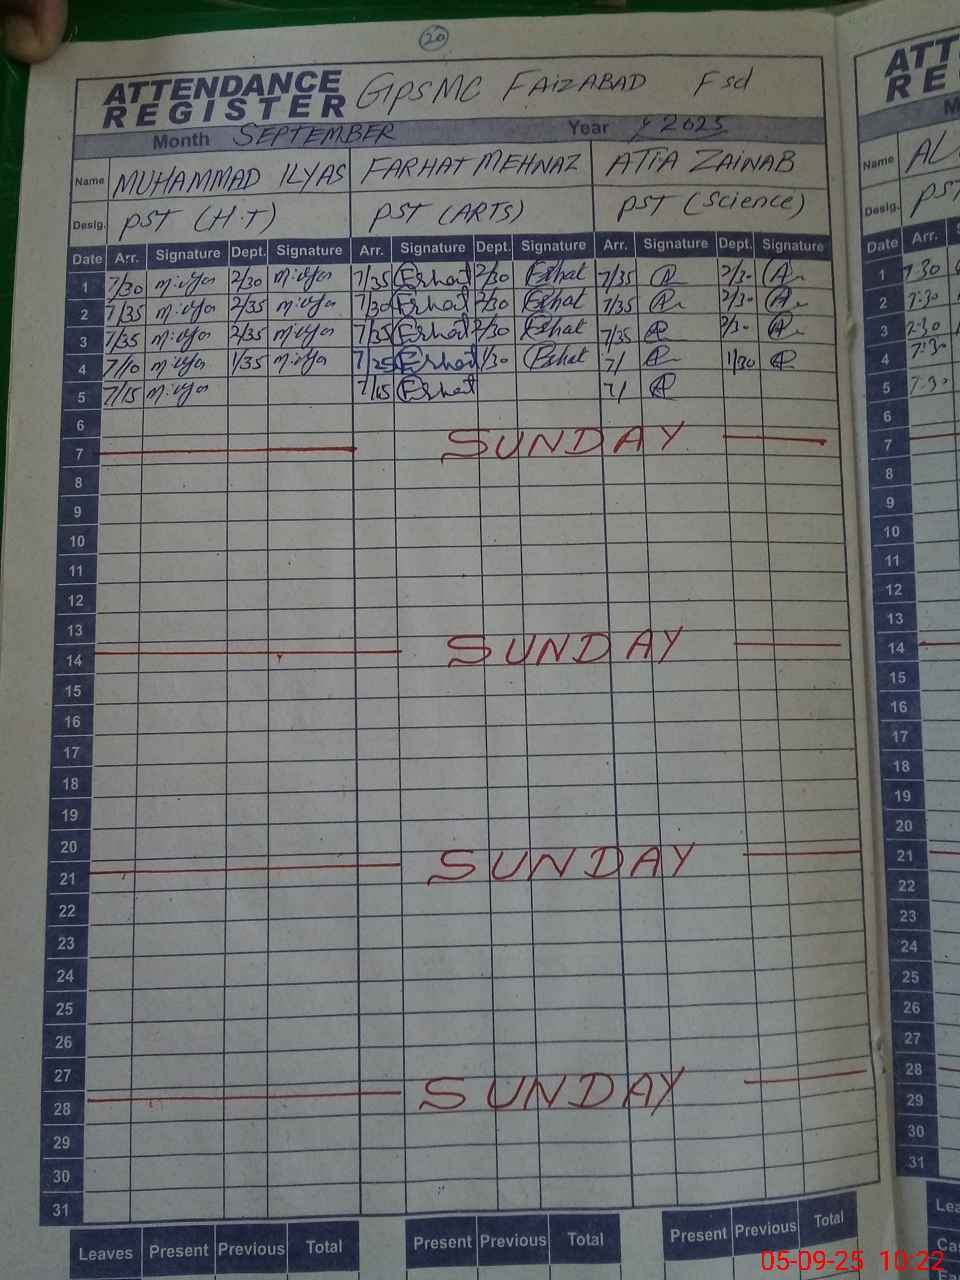 20
ATTENDANCE REGISTER GPSMC FAIZABAD Fsd
Month SEPTEMBER Year 2025
Name MUHAMMAD ILYAS FARHAT MEHNAZ ATIA ZAINAB
Desig. PST (H.T) PST (ARTS) PST (Science)
Date Arr. Signature Dept. Signature Arr. Signature Dept. Signature Arr. Signature Dept. Signature
1 7/30 m.ilyas 2/30 m.ilyas 7/35 Erhat 2/30 Erhat 7/35 2/30
2 7/35 m.ilyas 2/35 m.ilyas 7/30 Erhat 2/30 Erhat 7/35 2/30
3 7/35 m.ilyas 2/35 m.ilyas 7/35 Erhat 2/30 Erhat 7/35 2/30
4 7/10 m.ilyas 1/35 m.ilyas 7/25 Erhat 1/30 Erhat 7/ 1/30
5 7/15 m.ilyas 7/15 Erhat 7/
6
7 SUNDAY
8
9
10
11
12
13
14 SUNDAY
15
16
17
18
19
20
21 SUNDAY
22
23
24
25
26
27
28 SUNDAY
29
30
31
Leaves Present Previous Total Present Previous Total Present Previous Total
ATT
RE
M
Name AL
Desig. PST
Date Arr. S
1 7.30
2 7.30
3 7.30
4 7.30
5 7.30
6
7
8
9
10
11
12
13
14
15
16
17
18
19
20
21
22
23
24
25
26
27
28
29
30
31
Lea
Cas
05-09-25 10:22